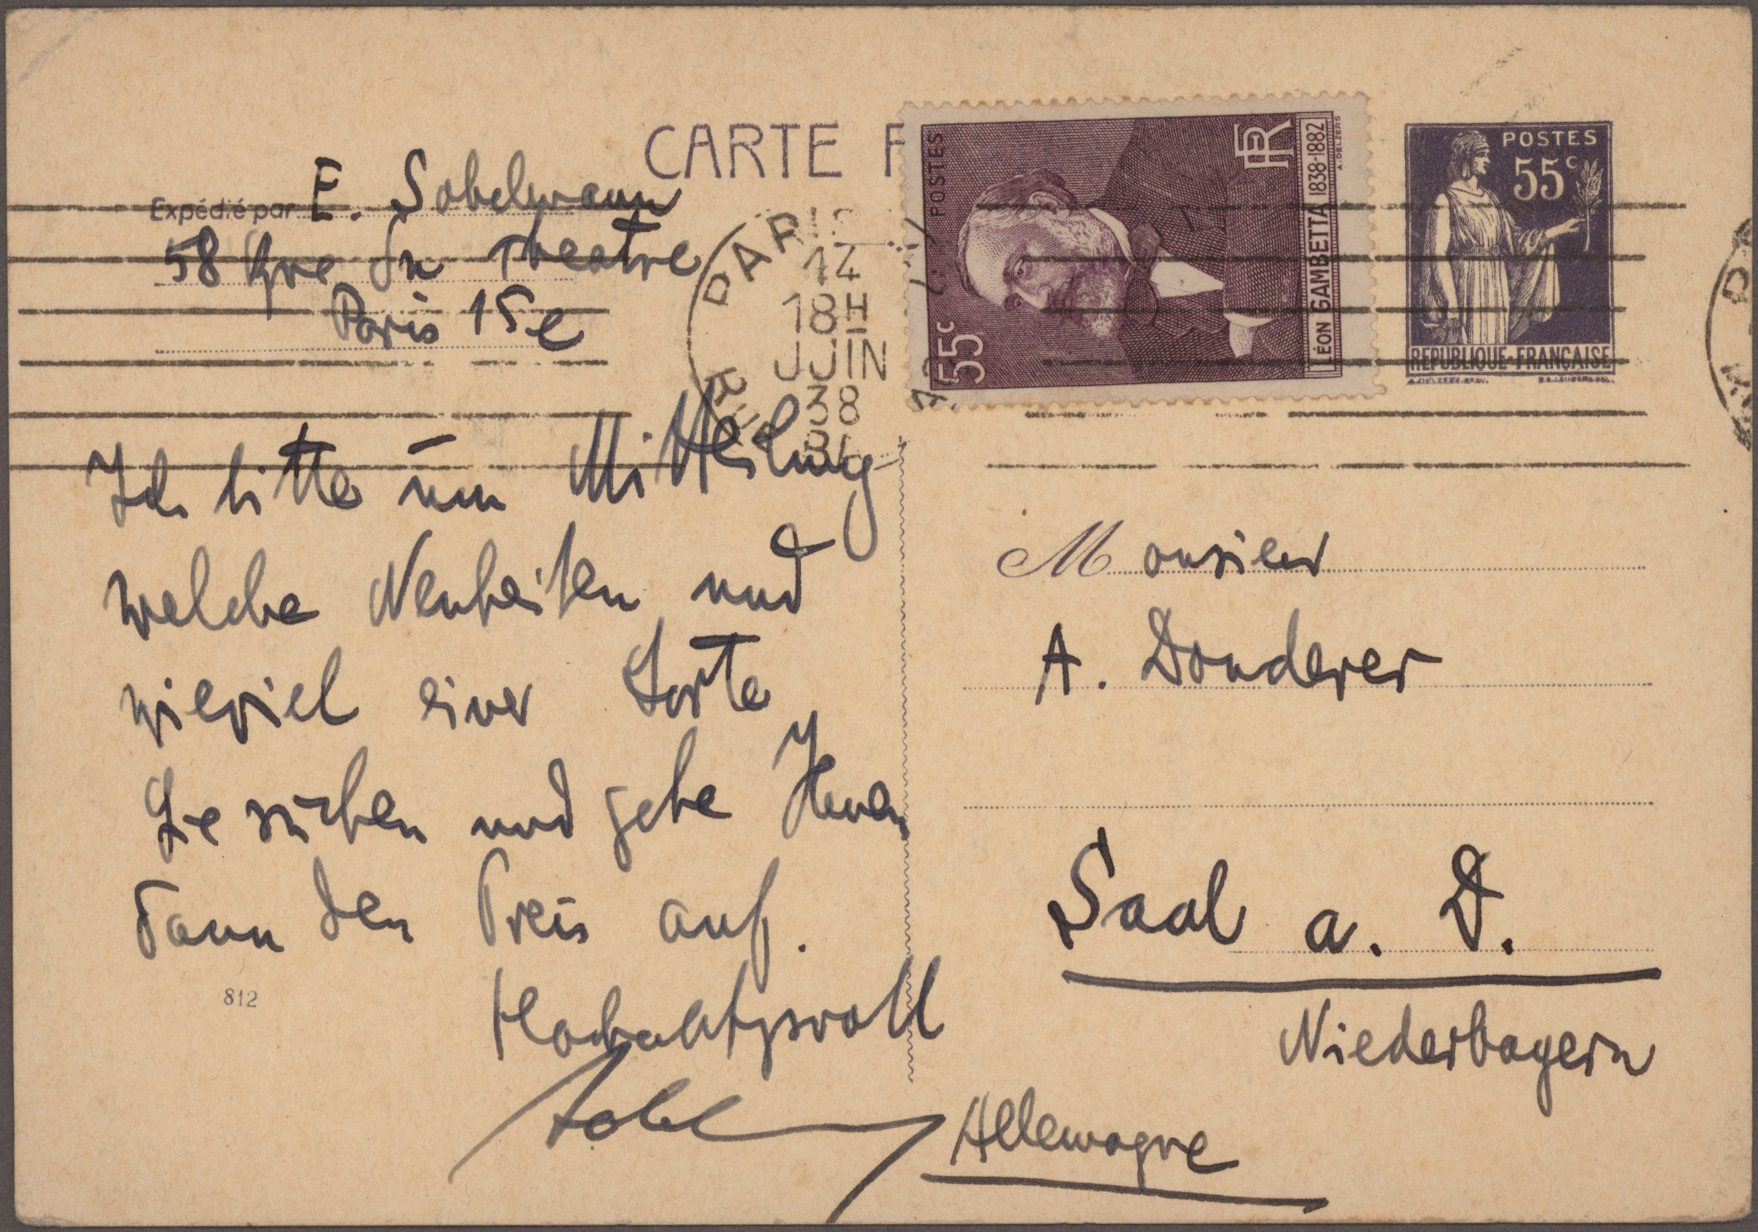 CARTE P
Expédié par E. Sobelmann
58 Rue du Theatre
Paris 15e
PARIS
14
18H
JUIN
38
POSTES
55c
RF
LÉON GAMBETTA 1838-1882
A. DELZERS
POSTES
55c
REPUBLIQUE FRANÇAISE
Ich bitte um Mitteilung
welche Neuheiten und
wieviel einer Sorte
Sie suchen und gebe Ihnen
dann den Preis auf.
Hochachtungsvoll
812
Monsieur
A. Donderer
Saal a. D.
Niederbayern
Allemagne